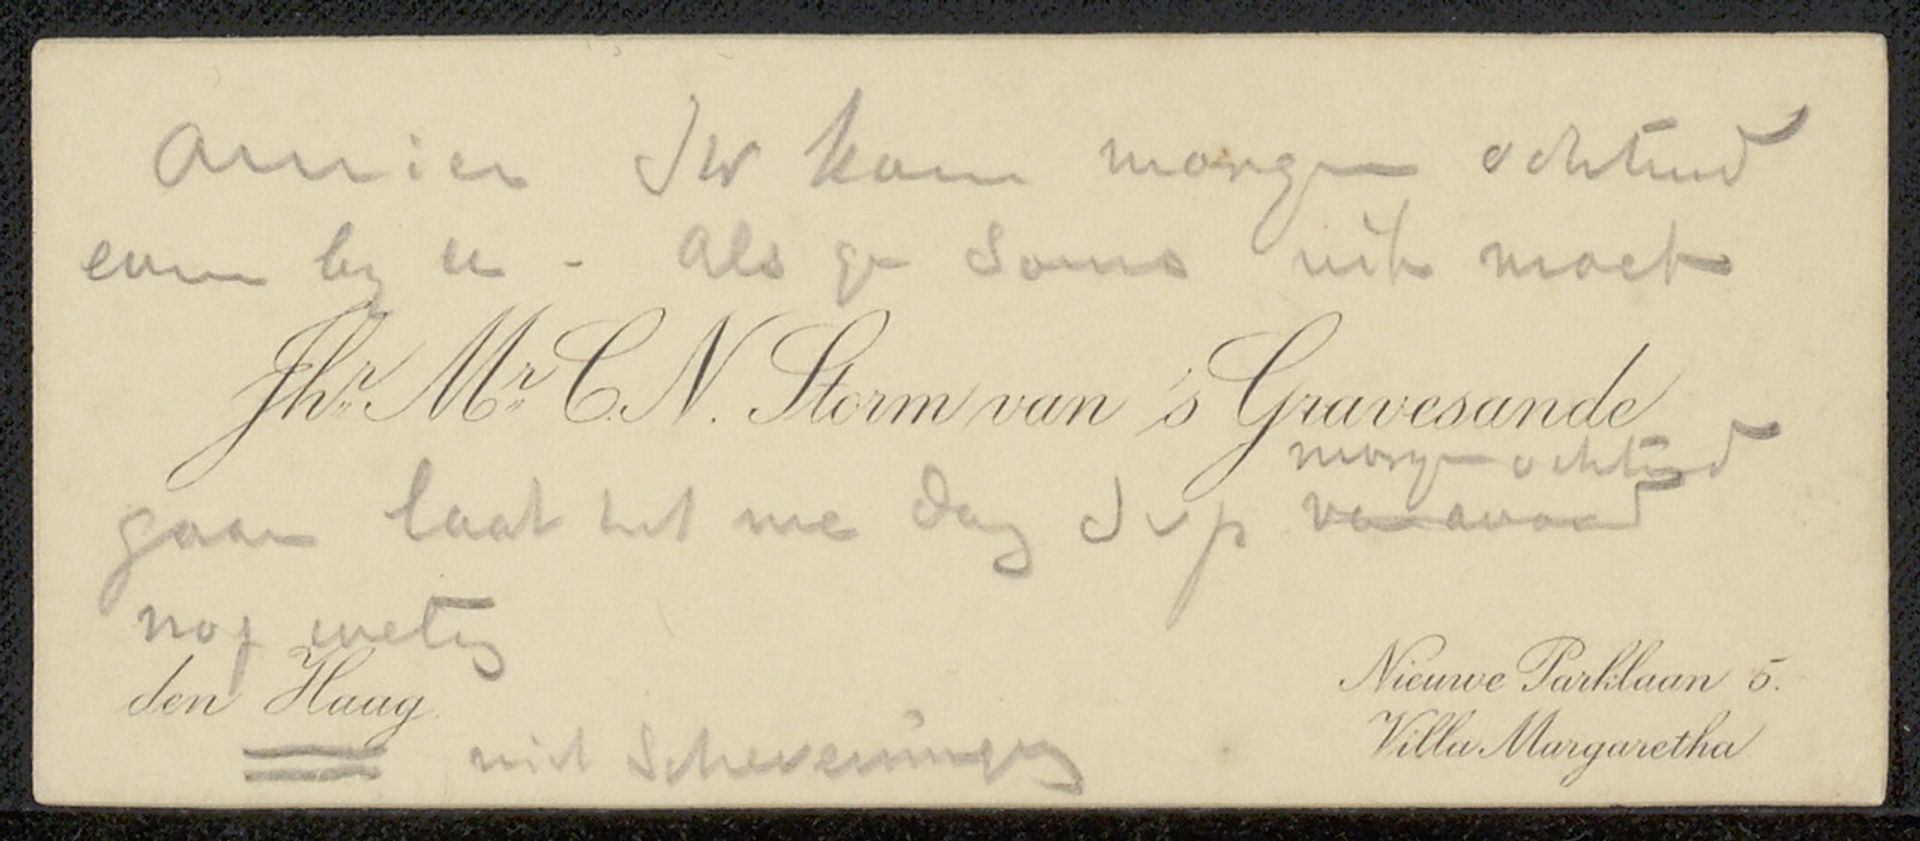 Amice Ik kom morgen ochtend
even by u - Als ge soms uit moet
Jhr. Mr. C.N. Storm van 's Gravesande
morgen ochtend
gaan laat het me dan svp van avond
nog weten
den Haag.
Nieuwe Parklaan 5.
Villa Margaretha
niet Scheveningen